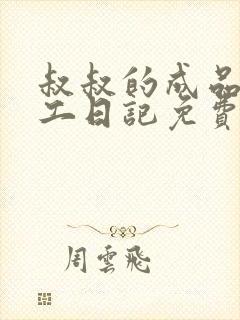 叔叔的成品
二日記免費
周雲飛